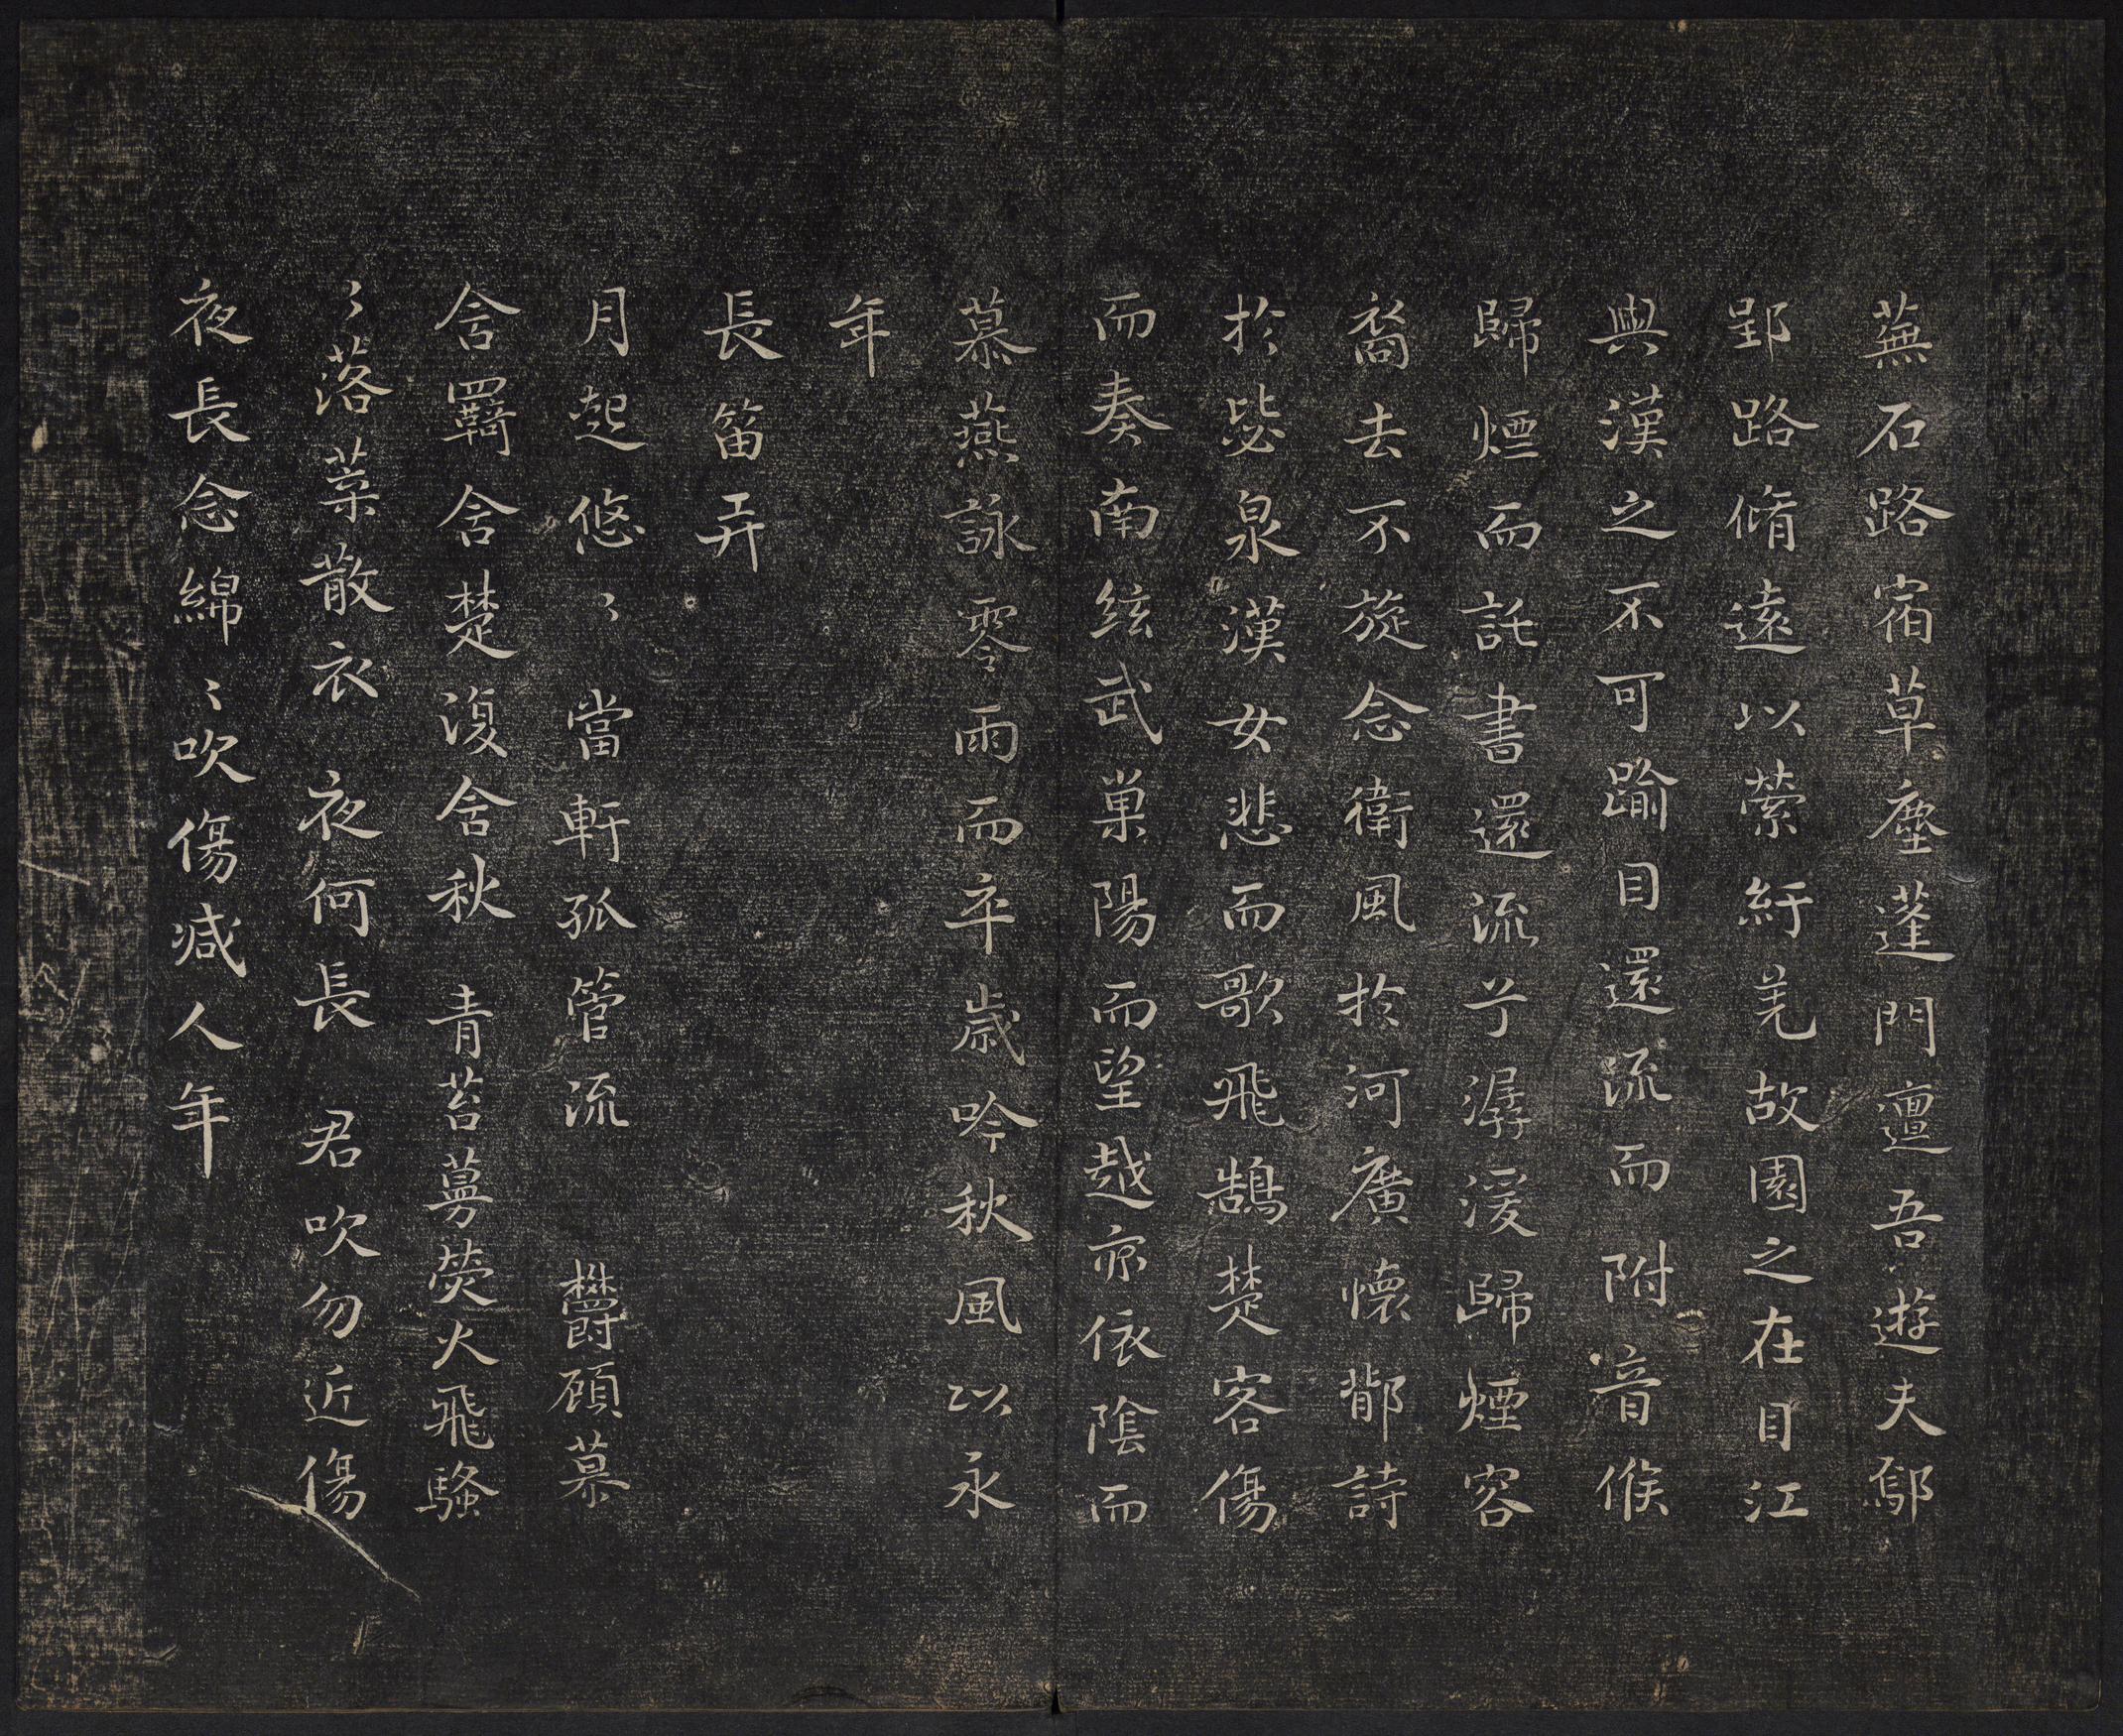 蕪石路宿草塵蓬門邅吾遊夫鄢
郢路脩遠以縈紆羌故園之在目江
與漢之不可踰目還流而附音候
歸煙而託書還流兮潺湲歸煙容
裔去不旋念衛風於河廣懷鄁詩
於毖泉漢女悲而歌飛鵠楚客傷
而奏南絃武巢陽而望越亦依陰而
慕燕詠零雨而卒歲吟秋風以永
年
長笛弄
月起悠〻 當軒孤管流 鬱顧慕
含羈含楚復含秋 青苔蔓熒火飛騷
〻落葉散衣 夜何長 君吹勿近傷
夜長念綿〻吹傷減人年